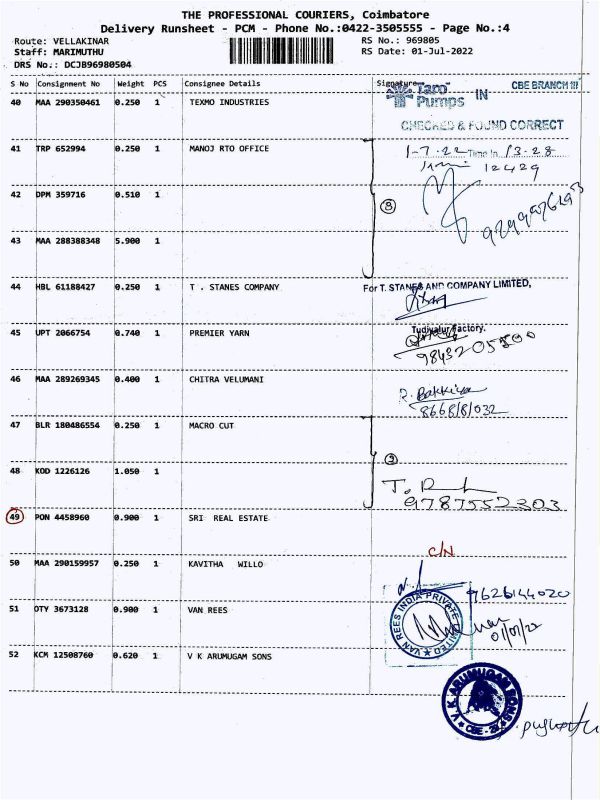 THE PROFESSIONAL COURIERS, Coimbatore
Delivery Runsheet - PCM - Phone No.:0422-3505555 - Page No.:4
Route: VELLAKINAR
RS No.: 969805
Staff: MARIMUTHU
RS Date: 01-Jul-2022
DRS No.: DCJB96980504
S No Consignment No Weight PCS Consignee Details Signature
40 MAA 290350461 0.250 1 TEXMO INDUSTRIES
Taro Pumps IN CBE BRANCH III
CHECKED & FOUND CORRECT
41 TRP 652994 0.250 1 MANOJ RTO OFFICE
1-7-22 Time In 13-28
12429
42 DPM 359716 0.510 1
8
43 MAA 288388348 5.900 1
44 HBL 61188427 0.250 1 T . STANES COMPANY
For T. STANES AND COMPANY LIMITED,
Tudiyalur Factory.
45 UPT 2066754 0.740 1 PREMIER YARN
46 MAA 289269345 0.400 1 CHITRA VELUMANI
R. Bakkiya
47 BLR 180486554 0.250 1 MACRO CUT
48 KOD 1226126 1.050 1
9787552303
49 PON 4458960 0.900 1 SRI REAL ESTATE
C/N
50 MAA 290159957 0.250 1 KAVITHA WILLO
9626144020
51 OTY 3673128 0.900 1 VAN REES
VAN REES INDIA PRIVATE LIMITED
01/07/22
52 KCM 12508760 0.620 1 V K ARUMUGAM SONS
V.K. ARUMUGAM SONS